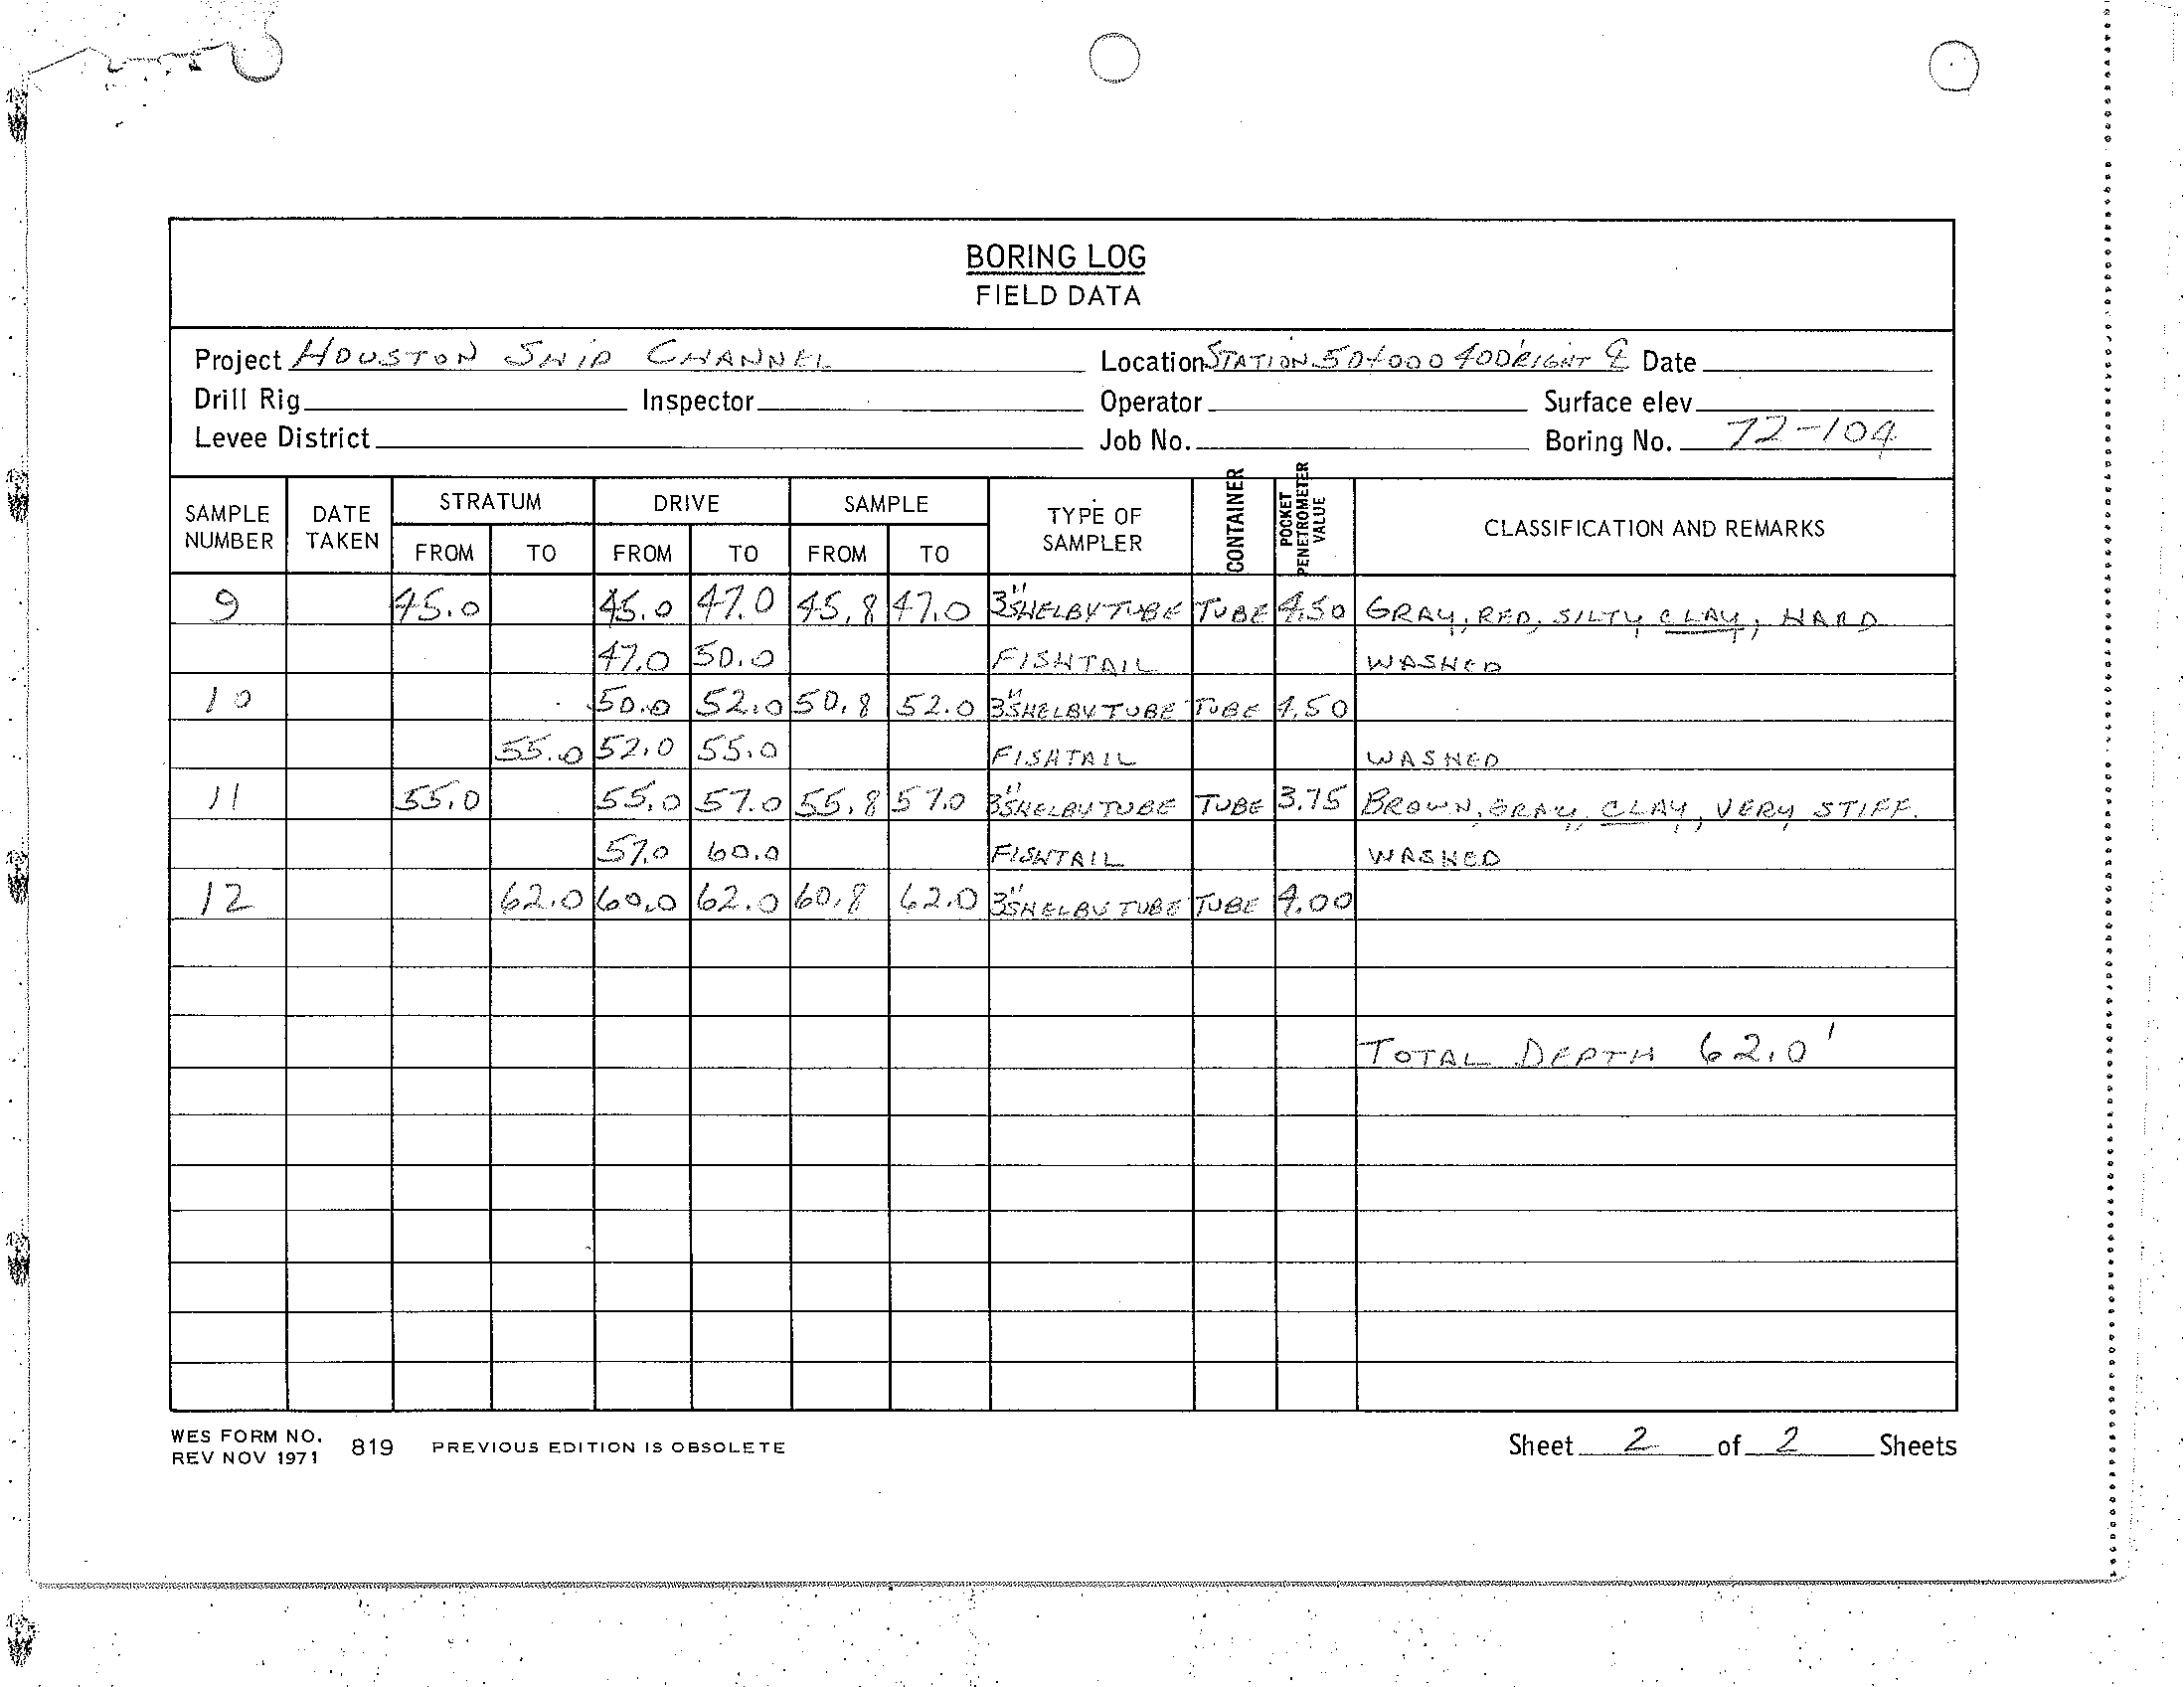 BORING LOG
FIELD DATA
Project HOUSTON SHIP CHANNEL Location STATION 50+000 400' RIGHT ℄ Date
Drill Rig Inspector Operator Surface elev.
Levee District Job No. Boring No. 72-104
SAMPLE NUMBER DATE TAKEN STRATUM FROM TO DRIVE FROM TO SAMPLE FROM TO TYPE OF SAMPLER CONTAINER POCKET PENETROMETER VALUE CLASSIFICATION AND REMARKS
9 45.0 45.0 47.0 45.8 47.0 3" SHELBY TUBE TUBE 4.50 GRAY, RED, SILTY CLAY, HARD
47.0 50.0 FISHTAIL WASHED
10 50.0 52.0 50.8 52.0 3" SHELBY TUBE TUBE 4.50
55.0 52.0 55.0 FISHTAIL WASHED
11 55.0 55.0 57.0 55.8 57.0 3" SHELBY TUBE TUBE 3.75 BROWN, GRAY, CLAY, VERY STIFF.
57.0 60.0 FISHTAIL WASHED
12 62.0 60.0 62.0 60.8 62.0 3" SHELBY TUBE TUBE 4.00
TOTAL DEPTH 62.0'
WES FORM NO. 819 PREVIOUS EDITION IS OBSOLETE Sheet 2 of 2 Sheets
REV NOV 1971